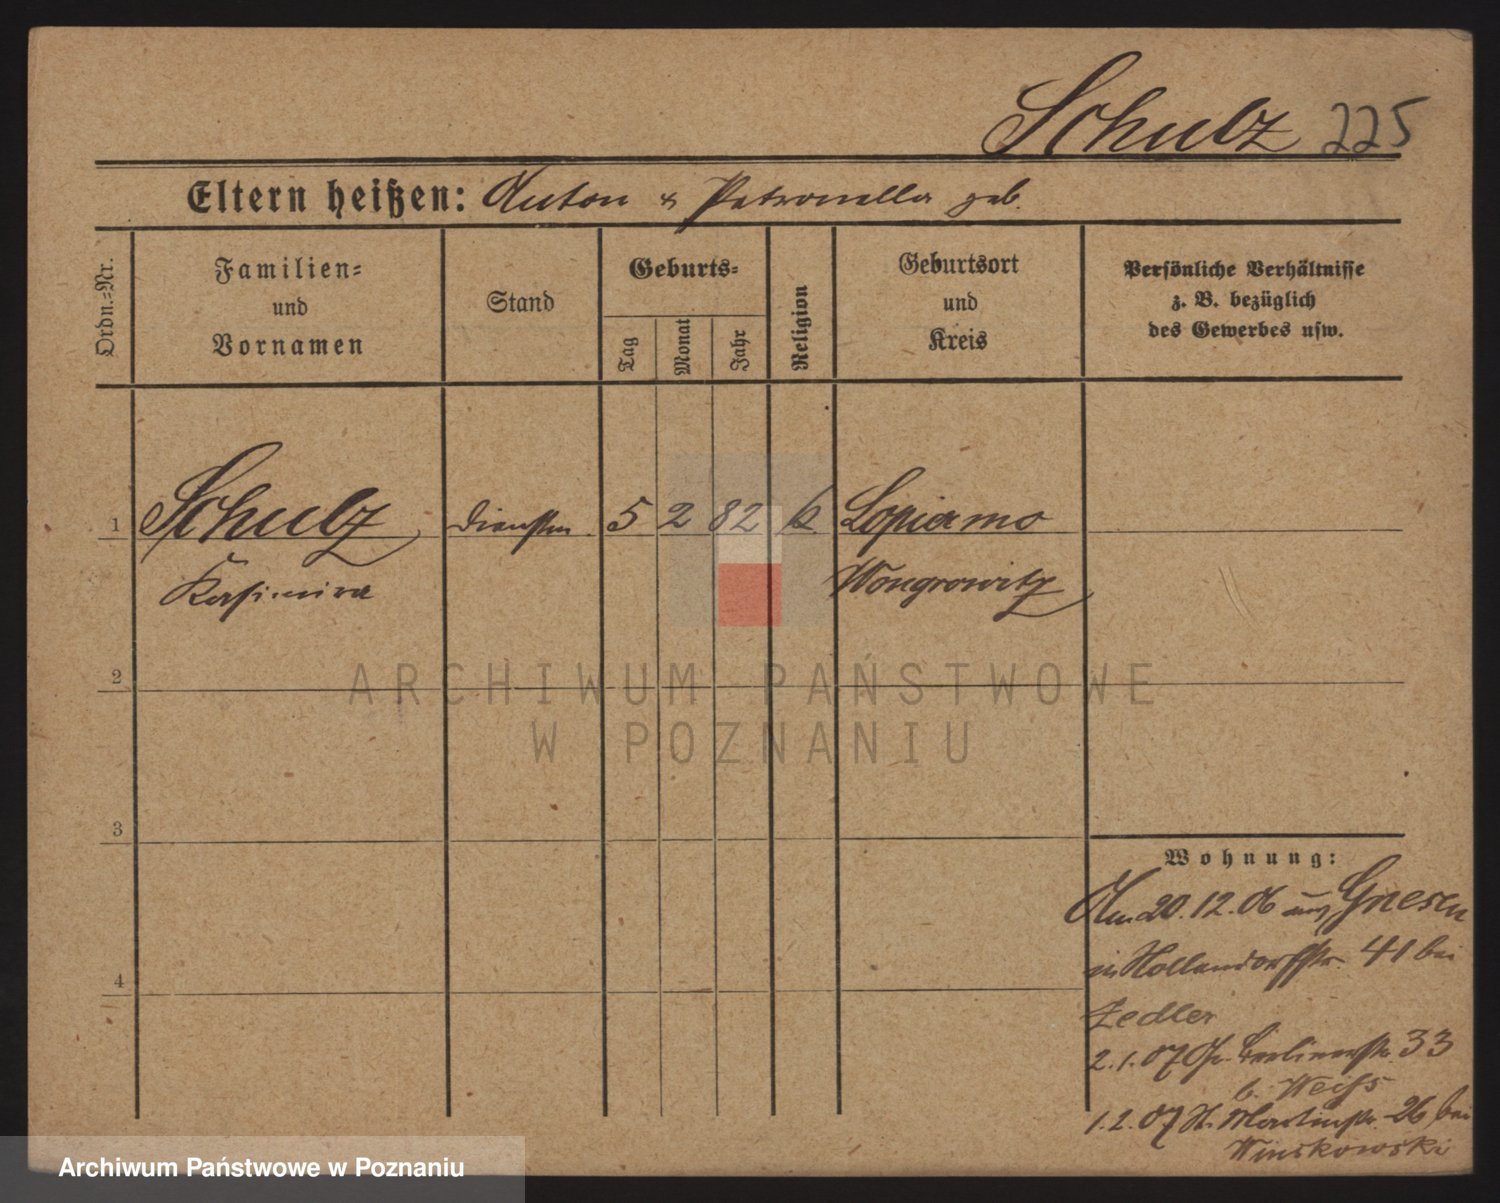 Schulz 225
Eltern heißen: Anton & Petronella geb.
Ordn.-Nr.
Familien-
und
Vornamen
Stand
Geburts-
Tag
Monat
Jahr
Religion
Geburtsort
und
Kreis
Persönliche Verhältnisse
z. B. bezüglich
des Gewerbes usw.
1 Schulz 5 2 82 k. Lopiamo
Kasimira Wongrowitz
2
ARCHIWUM PAŃSTWOWE
W POZNANIU
3
Wohnung:
Am 20.12.06 aus Gnesen
in Hollendorffstr. 41 bei
4
Zedler
2.1.07 Gr. Berlinerstr. 33
b. Weiss
1.2.07 St. Martinstr. 26 bei
Winskowski
Archiwum Państwowe w Poznaniu